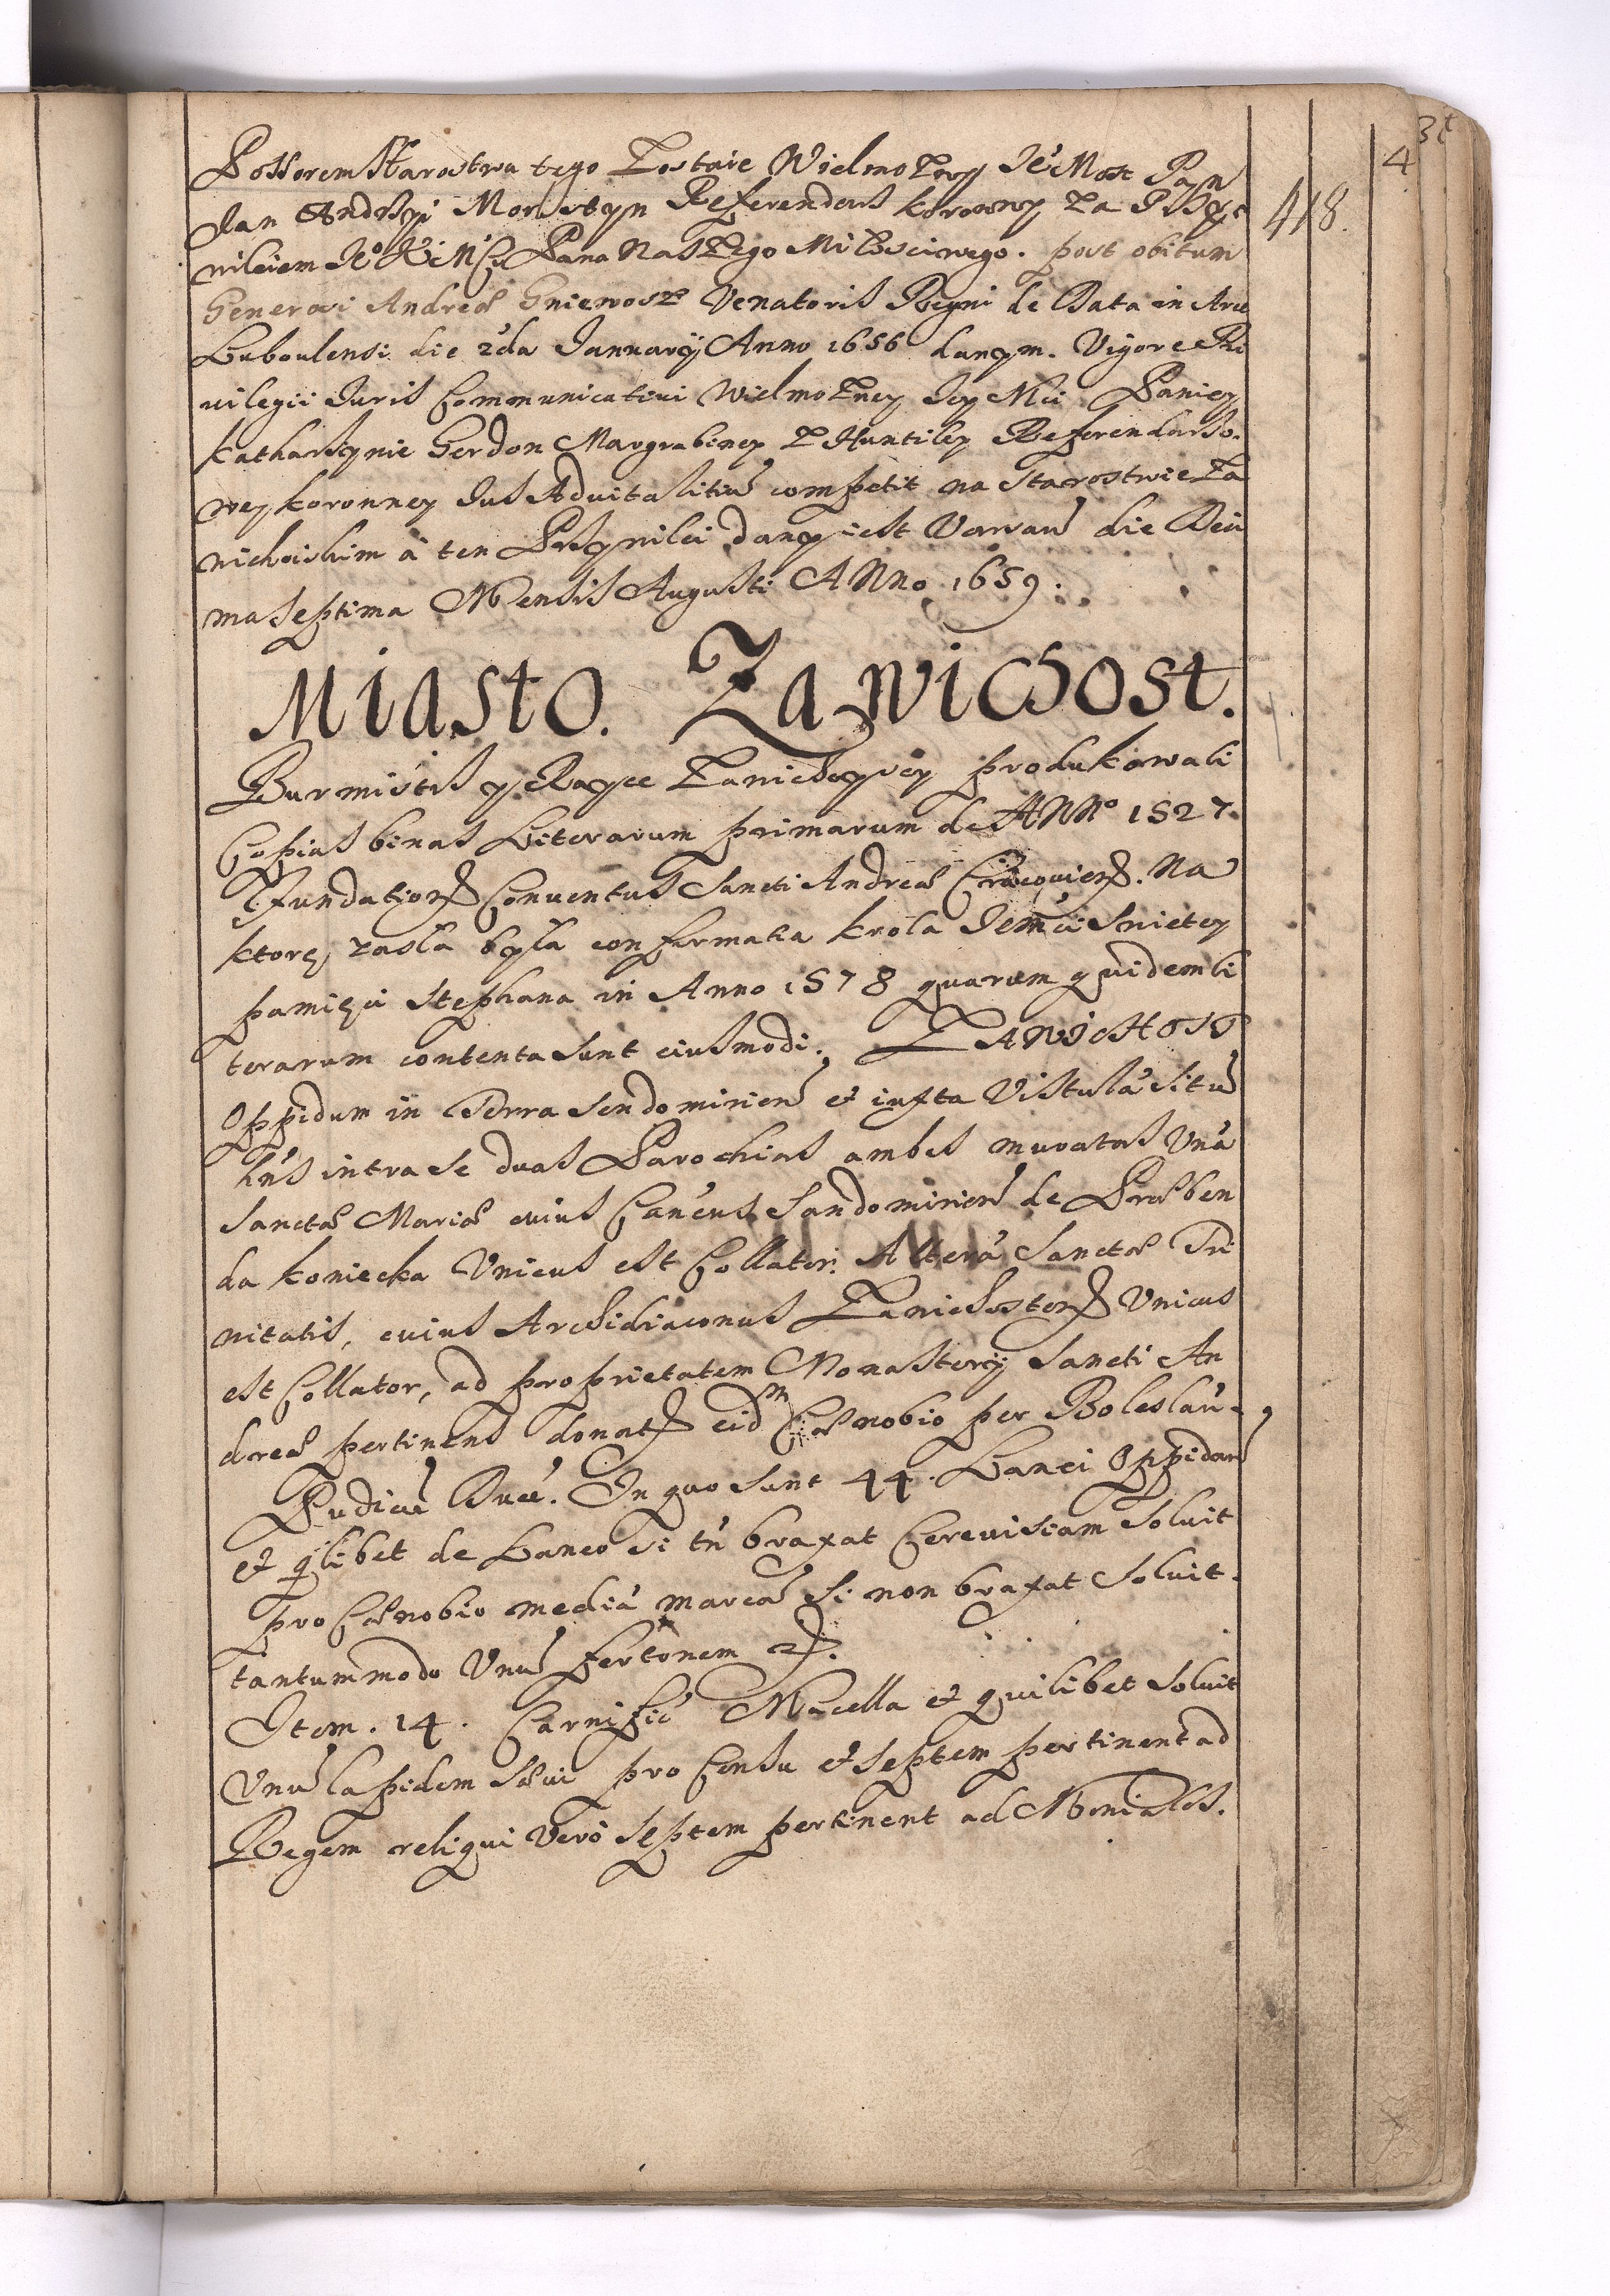 3t
4
418.
Possorem Starostwa tego Zostaie Wielmozny Je Mosc Pan
Jan Andrzyi Morsstyn Referendars koronny Za Przy
wileiem Jeo K M Pana Naszego Miłosciwego. post obitum
Generosi Andreæ Gniewosz Venatoris Regni de Data in Arce
Luboulensi die 2da Januarij Anno 1656 danym. Vigore Pri
uilegii Juris Communicatiui Wielmozney Jey Mci Paniey
Katharzynie Gordon Margrabiney Z Huntiley Referendarzo.
wey koronney Jus Aduitalitiu competit na Starostwie Za
wichoiskim a ten Przywilei dany iest Varsau die Deci
ma septima Mensis Augusti ANno 1659.
Miasto. Zawichost.
Burmistrz y Raycе Zawichoyscy produkowali
Copias binas Literarum primarum de ANNo 1527.
Fundationis Conventus Sancti Andreæ Cracouien. Na
ktorę zasła była confirmatia krola Jemci Swietey
pamięci Stephana in Anno 1578 quarum quidem li
terarum contenta sunt eiusmodi. ZAWICHOST
Oppidum in Terra Sendomirien et iuxta Vistula situ
hns intra se duas Parochias ambas muratas Una
Sanctæ Mariæ cuius Cancus Sandomirien de Præben
da Koniecka Unicus est Collator. Altera Sanctæ Tri
nitatis, cuius Archidiaconus Zawichosten Unicus
est Collator, ad proprietatem Monasterij Sancti An
dreæ pertinens donat eidm Cænobio per Boleslau
Pudicu Ducē. In quo sunt 44. Lanei Oppidan
et qlibet de Laneo si tn braxat Cereuisiam Soluit
pro Cænobio media marca Si non braxat Soluit.
tantummodo Unu fertonem
Item. 14. Carnific Macella et quilibet Soluit
Unu lapidem Sæui pro Censu et septem pertinent ad
Regem reliqui Vero septem pertinent ad Moniales.